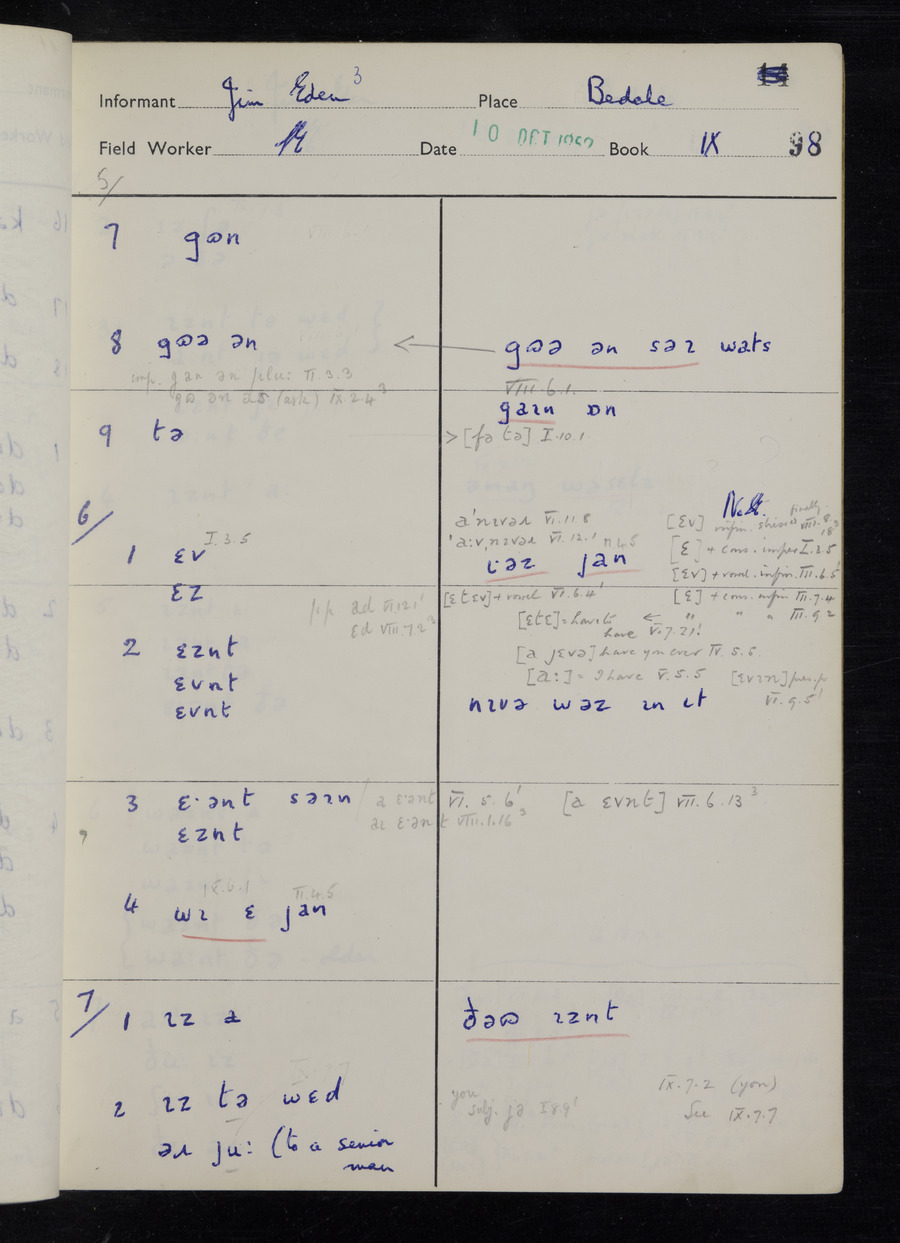 Informant Jim Eden 3 Place Bedale
Field Worker Date 10 OCT 1952 Book IX 98
5/
7 gɷn
8 gɷə ən ← gɷə ən səɪ wats
imp. gan ən plu: VI.3.3 VIII.6.1.
gɷ ən as (ask) IX.2.4 3 gaɪn ɒn
9 tə >[fə tə] I.10.1.
6/
Nd.
a'nɪvəɹ VI.11.8 [ɛv] infin. stressed VIII.8
'a:v,nɪvəɹ VI.12.1 II.4.5
1 ɛv I.3.5 ɩəz jan [ɛ] + cons. imper I.3.5
[ɛv] + vowel. infin. III.6.5
ɛz [ɛtɛv] + vowel VI.6.4' [ɛ] + cons. infin III.7.4
pp ad VI.12.1' [ɛtɛ] = have to ← " " " III.9.2
ɛd VIII.7.2 3 have V.7.21!
2 ɛznt [a jɛvə] have you ever IV.5.5.
ɛvnt [a:] = I have V.5.5 [ɛvɪn] pres.p
ɛvnt nɪvə wəz ɪn ɩt VI.9.5'
3 ɛ·ənt səɪn / a ɛ·ənt VI.5.6' [a ɛvnt] VII.6.13 3
, ɛznt aɪ ɛ·ənt VIII.1.16 3
IX.6.1 II.4.5
4 wɪ ɛ jan
7/
1 ɪz a ðəɷ ɪznt
2 ɪz tə wɛd you IX.7.2 (you)
subj. jə I.8.9' See IX.7.7
əɹ ju: (to a senior
man